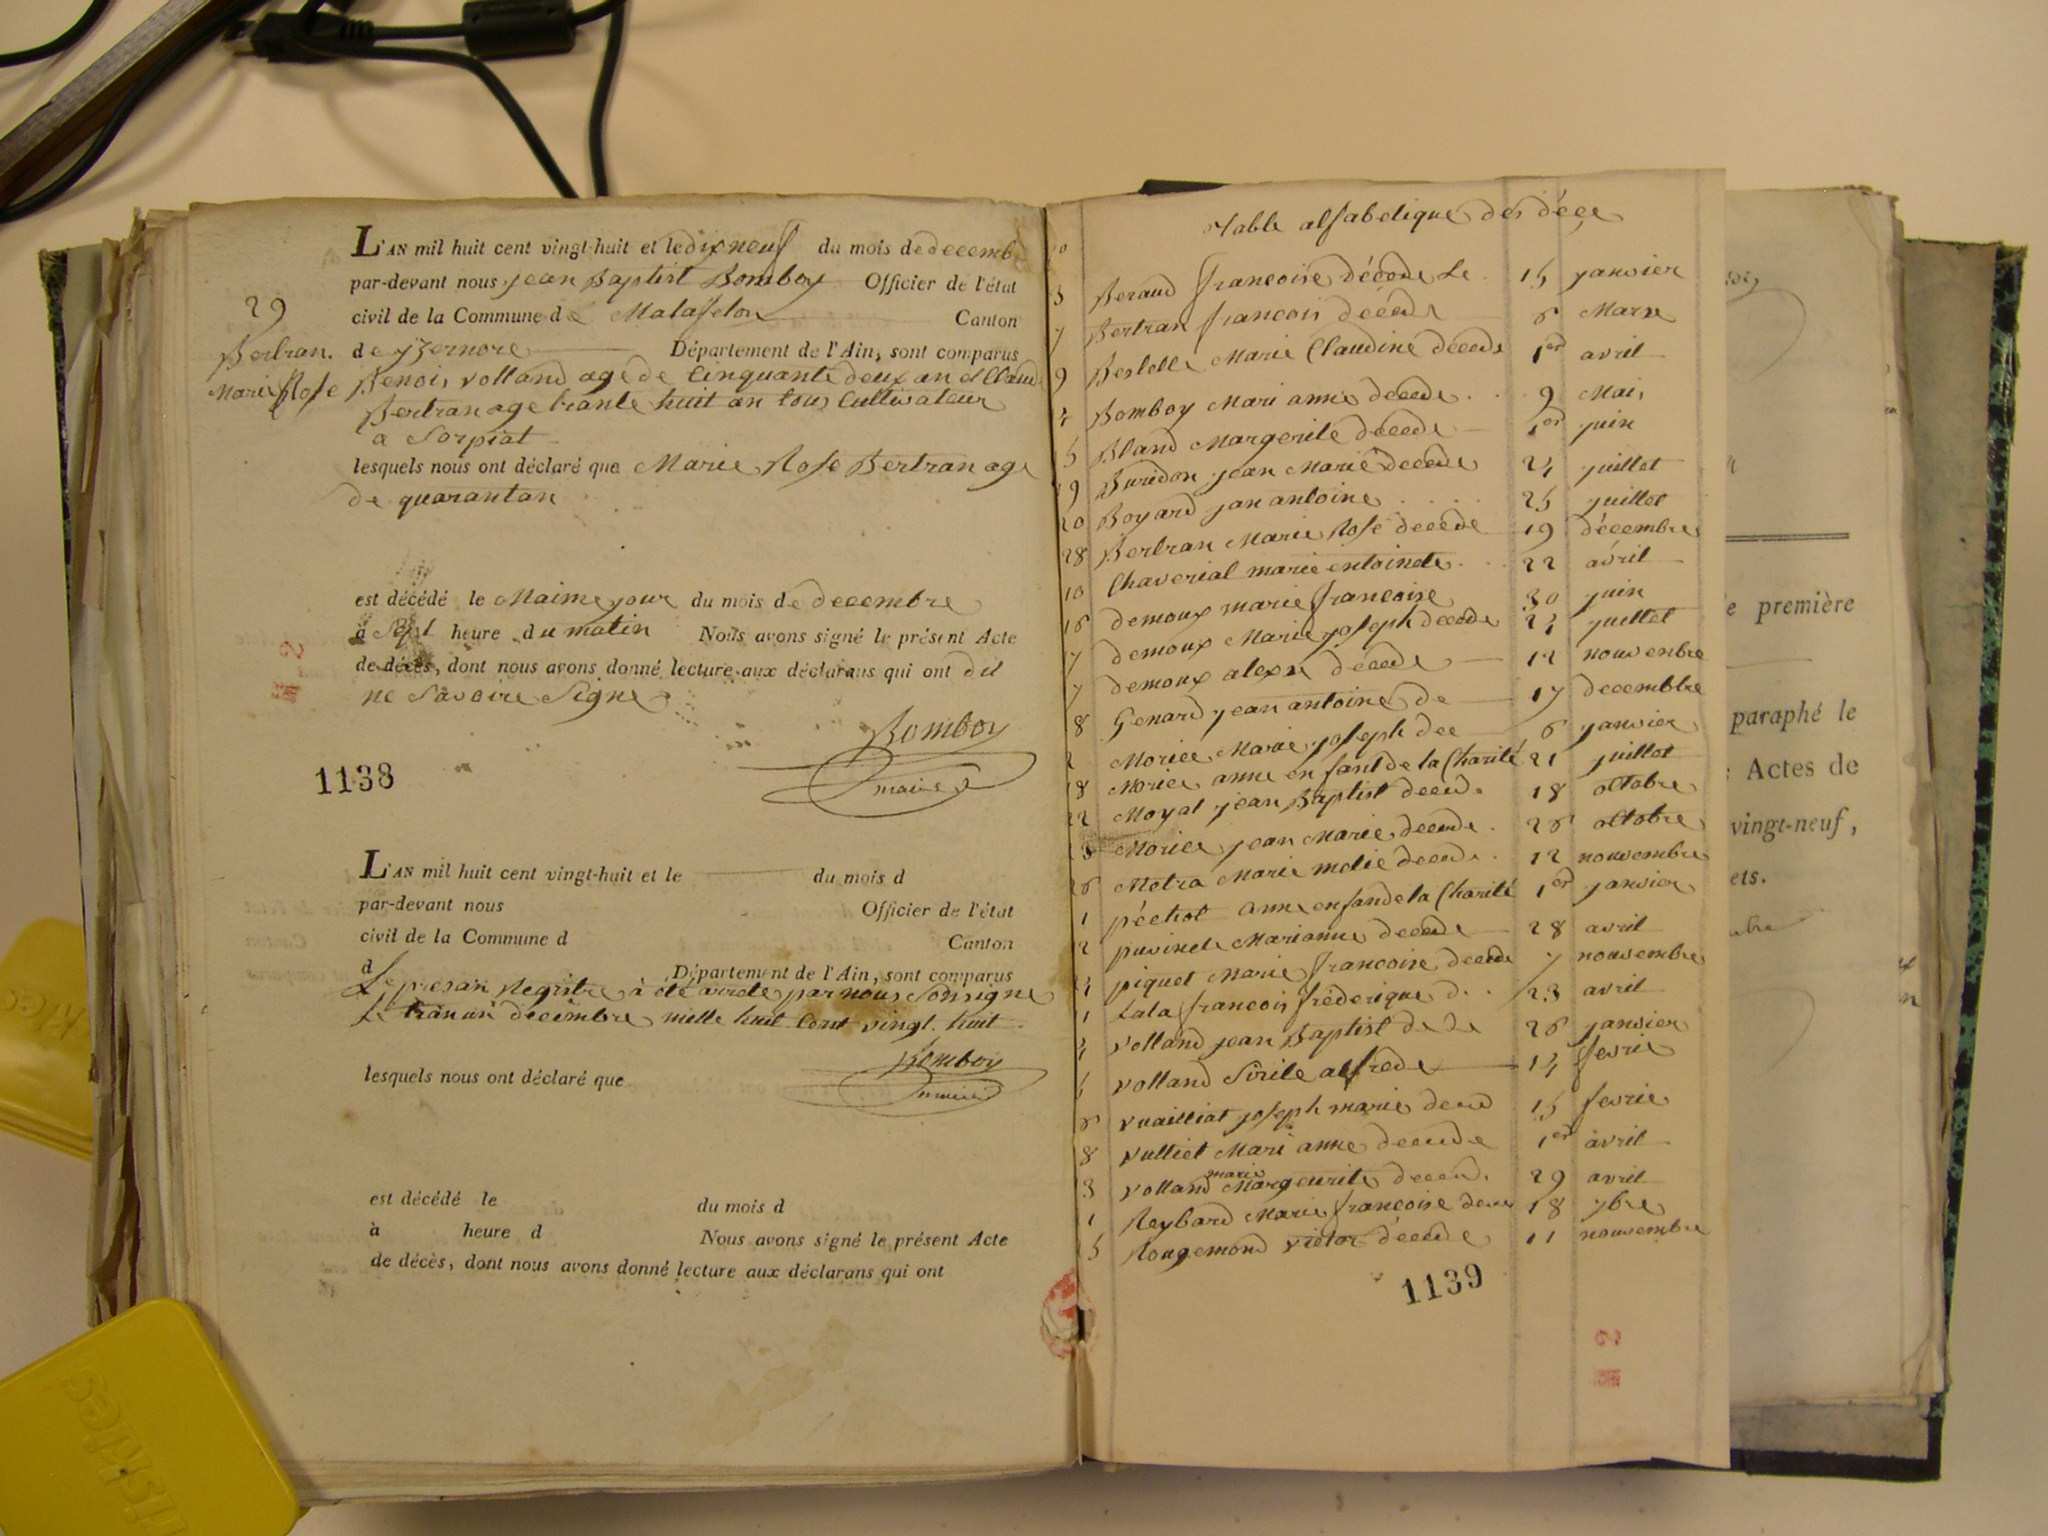 L'AN mil huit cent vingt-huit et le dix neuf du mois de decemb
par-devant nous jean Baptist Bomboy Officier de l'état
civil de la Commune de Matafelon Canton
de yzernore Département de l'Ain, sont comparus
29
Bertran.
Marie Rose
Benois volland age de Cinquante deux an et Claud
Bertran age trante huit an tous Cultivateur
a Sorpiat
lesquels nous ont déclaré que Marie Rose Bertran age
de quarantan
est décédé le Maime jour du mois de decembre
à Sept heure du matin Nous avons signé le présent Acte
de décès, dont nous avons donné lecture aux déclarans qui ont dit
ne Savoire Signe
Bomboy
maire
1138
L'AN mil huit cent vingt-huit et le du mois d
par-devant nous Officier de l'état
civil de la Commune d Canton
d Département de l'Ain, sont comparus
Le presan Regitre à été arrete par nous Sousigne
Le tranun decembre mille huit Cent vingt huit
Bomboy
maire
lesquels nous ont déclaré que
est décédé le du mois d
à heure d Nous avons signé le présent Acte
de décès, dont nous avons donné lecture aux déclarans qui ont
Table alfabetique des déçe
3 Beraud francoise décede Le 15 janvier
7 Bertran francois décede 6 Mars
9 Bertelle Marie Claudine décede 1er avril
Bomboy Mari anne decede 9 Mai
5 Bland Margerite décede 1er juin
19 Buridon jean Marie decede 24 juillet
20 Boyard jan antoine 25 juillet
28 Bertran Marie Rose decede 19 décembre
10 Chaverial marie entoinete 22 avril
16 demoux marie francoise 30 juin
17 demoux Marie joseph decede 24 juillet
7 demoux alexn decede 12 nouvenbre
8 Genard jean antoine de 17 decembbre
2 Moriee Marie joseph dee 6 janvier
18 Moriee anne enfant de la Charité 21 juillet
22 Moyat jean Baptist deced. 18 octobre
Moriee jean Marie decede. 26 octobre
26 Metra Marie melie decede. 12 nouvembre
1 péchot anne enfan de la Charité 1er janvier
12 puvinele Marianne decede 28 avril
24 piquet Marie francoise decede 7 nouvembre
11 Lala francois fréderique d. 23 avril
4 volland jean Baptist de de 26 janvier
5 volland Sirile alfrede 14 fevrie
6 vuailliat joseph marie deced 15 fevrie
8 vulliet Mari anne decede 1er avril
13 volland marie Margeurite deced. 29 avril
1 Reybard Marie francoise dece 18 7bre
5 Rougemond victor décede 11 nouvembre
1139
première
paraphé le
Actes de
vingt-neuf,
ets.